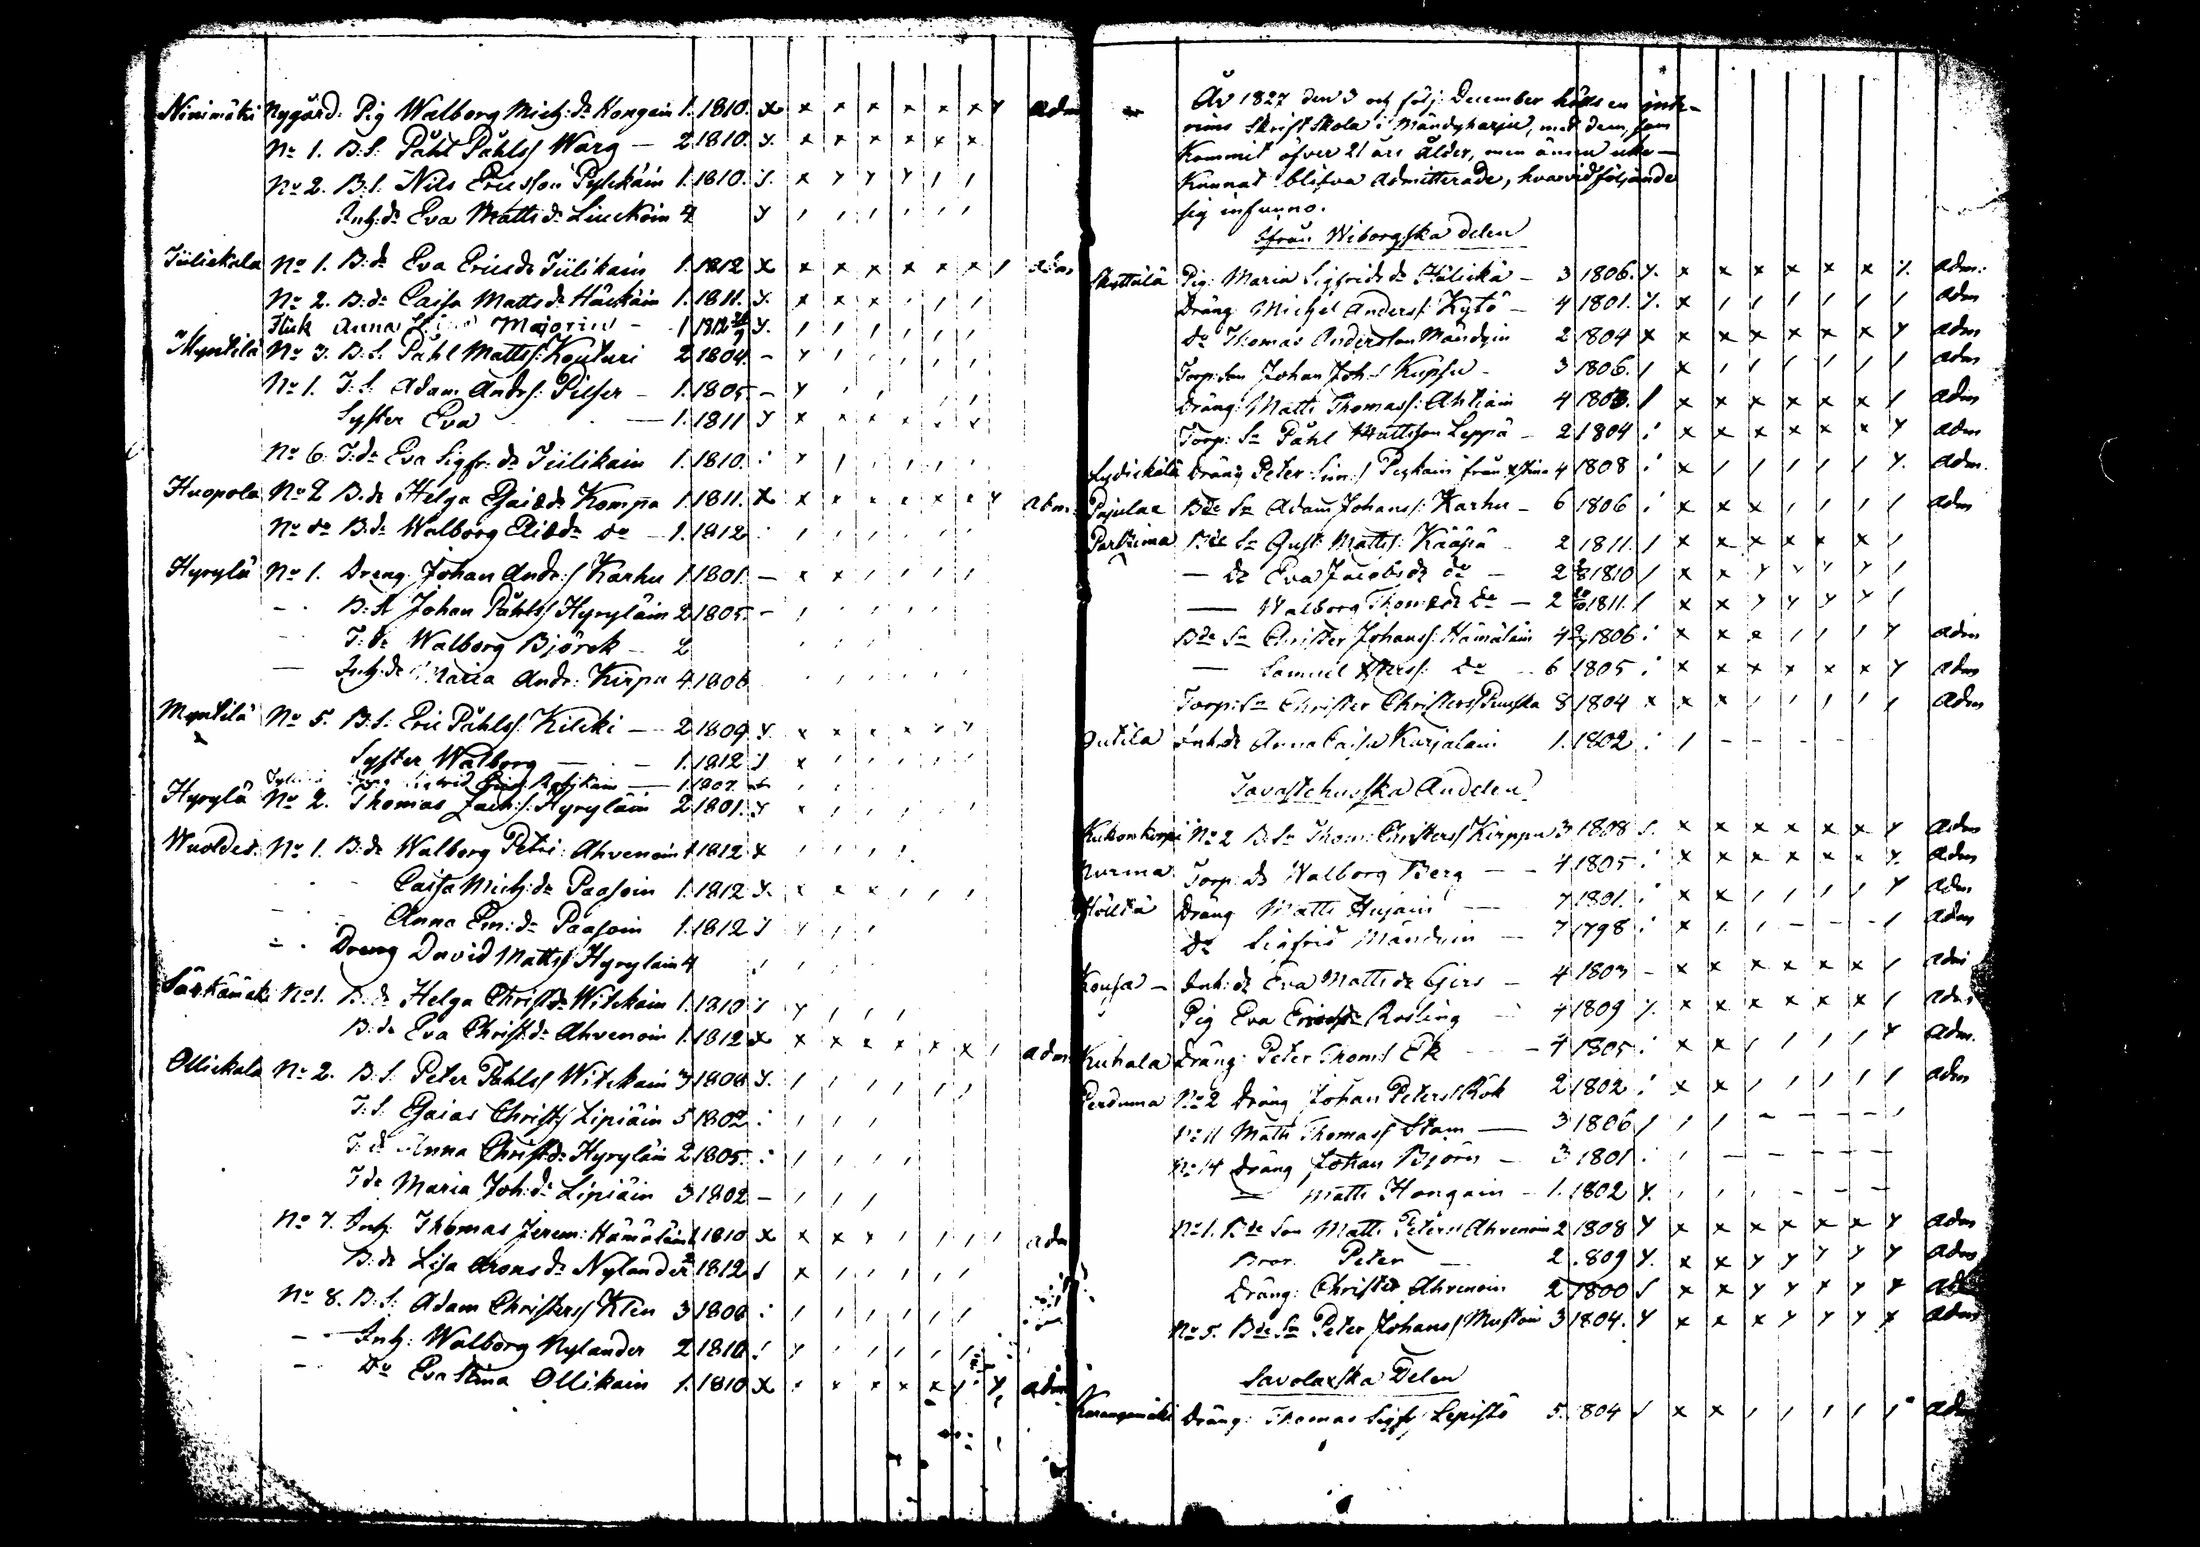 Ninimäki Nygård. Pig Walborg Mich: dr Hongain 1. 1810. x x x x x x x y adm
No 1. B:S: Påhl Påhlss Warg — 2 1810. y. x x x x x x
No 2. B:S. Nils Ericsson Pylckäin 1. 1810. /. x y y y / /
Inh: dr Eva Matts dr Liuckoin 4 y / / / / / /
Tiilickala No 1. B: dr Eva Erics dr Tiilikain 1. 1812 x x x x x x x / adm
No 2. B: dr Caisa Matts dr Häckäin 1. 1811. y. x x x / / /
Flick Anna Majorin — 1 1812 y. / / / / / /
Myntilä No 3. B.S. Påhl Mattss: Kouturi 2 1804. — y / / / / /
No 1. T:S: Adam Andrs: Pilfer — 1. 1805 — y / / / /
Syster Eva — 1. 1811 y x x x x x
No 6. T: dr Eva Sigfr: dr Tiilikain 1. 1810. / y / / / / /
Huopola No 2 B. dr Helga Gaie dr Kompa 1. 1811. x x x x x x x y adm.
No do B: dr Walborg Elis dr do — 1. 1812 / / / / / / /
Hyrylä No 1. Dreng Johan Andr:s Karhu 1. 1801. — x x / / / /
B. S. Johan Påhlss Hyryläin 2 1805. — / / / / / /
T: dr Walborg Björck — 2
Inh: dr Maria Andr: Kirpu 4 1806
Myntilä No 5. B:S: Eric Påhlss: Kilcki — 2 1809 y. x x x x y y
Syster Walborg — 1. 1812 / x / / / / /
1. 1807.
Hyrylä No 2. Thomas Zach:s: Hyryläin 2 1801. y x / / / / /
Wuoldes. No 1. B: dr Walborg Petri: Ahvenoin 1 1812 x / / / /
Caisa Mich: dr Paasoin 1. 1812 y. x x x / / /
Anna Em: dr Paasoin 1. 1812 / y / /
Dreng David Mattss Hyryläin 4 / / /
Särkämäk No 1. B: dr Helga Christ dr Witckäin 1. 1810 / y / / /
B: dr Eva Christ: dr Ahvenoin 1. 1812 x x x x x x x / adm
Ollickala No 2. B. S. Peter Påhlss Witckäin 3 1808 y. / / / / / /
T: S. Gaias Christs Lipiäin 5 1802 / / / / / / /
T: dr Anna Christ dr Hyryläin 2 1805. / / / / /
T dr Maria Joh: dr Lipiäin 3 1802 — / / /
No 7. Inh: Thomas Jerem: Hämäläin 1 1810 x x x y / / / / adm
B: dr Lisa Arons dr Nylander 2 1812 / x / / / / /
No 8. B: S: Adam Christerss Klen 3 1806 / / / / / / /
Inh: Walborg Nylander 2 1810 / y / / / / /
Do Eva Stina Ollikain 1. 1810 x / x x x x y y adm
År 1827 den 3 och följ: December hölls en
Skrift Skola i Mändyharju, med dem, som
Kommit öfver 21 års ålder, men ännu icke
Kunnat blifva Admitterade, hvarvid följande
sig infunno.
Ifrån Wiborgska delen
Skyttälä Pig: Maria Sigfrids dr Hälickä — 3 1806. y. x x x x x x y. adm:
Dräng Michel Anderss: Kytö — 4 1801. y. x / / / / / / adm
Do Thomas Andersson Mändyin 2 1804 x x x x x x x y adm
Torp: Son Johan Joh:s Kupsu — 3 1806. / x / / / / / / adm
Dräng: Matts Thomass: Ahtiain 4 1803. / x x x x x x / adm
Torp: Sn Påhl Mattsson Leppä — 2 1804 / x x x x x x y adm
Lydickälä Dräng Peter Sim:s Peskain från 4 1808 / x / / / / / y. adm.
Pajulae Bde Sn Adam Johanss: Karhu — 6 1806 / x x x / / / / adm
Partzima Bde Sn Gust: Mattss: Kääpä 2 1811. / x x x x x x /
— Dr Eva Jacobs dr do — 2 1810 / x x y y y y /
— Walborg Thomas dr do — 2 1811. / x x y y y y /
Bde Sn Christer Johanss: Hämäläin 4 1806 / x x x / / / y adm
— Samuel do — 6 1805 / x x x x x x y adm
Torp: Sn Christer Christerss Puuska 8 1804 x x x / / / / / adm
Outila Inh: dr Anna Caisa Karjalain 1. 1802 / / — — — —
Tavastehusska Andelen
Kukonkorpi No 2 B Sn Thom: Christerss Kirppu 3 1808 /. x x x x x x y adm
Nurmaa Torp: dr Walborg Berg — 4 1805 / x x x x x x y. adm
Höltä Dräng Matts Hujain — 7 1801. / x x / / / / y adm
Do Sigfrid Mändyin — 7 1798 / x / / — — — / adm
Koufa — Inh: dr Eva Matts dr Gers — 4 1803 — x x x x x x / adm
Pig Eva Ericsdr Rosling 4 1809 y. x x x x x x / adm
Kuhala Dräng: Peter Thoms Ek — 4 1805 / x x / / / / y adm.
Perduma No 2 Dräng Johan Peterss Kok 2 1802 / x x / / / / / adm
No 11 Matts Thomass Stam — 3 1806 / / / — — — — /
No 14 Dräng Johan Björn — 3 1801 / / — — — — —
— Matts Hongain — 1. 1802 y. / / / — — —
No 1. Bde Son Matts Peterss Ahvenoin 2 1808 y x x x x x x y adm
Bror Peter — 2 1809 y. x x y y y y y adm
Dräng: Christer Ahvenoin 2 1800 / x x y y x y x adm
No 5. Bde Sn Peter Johanss Mustoin 3 1804. y x x x y y y x adm
Savolaxska Delen
Karangamäki Dräng: Thomas Sigfrs Lepistö 5 1804 / x x / / / / / adm